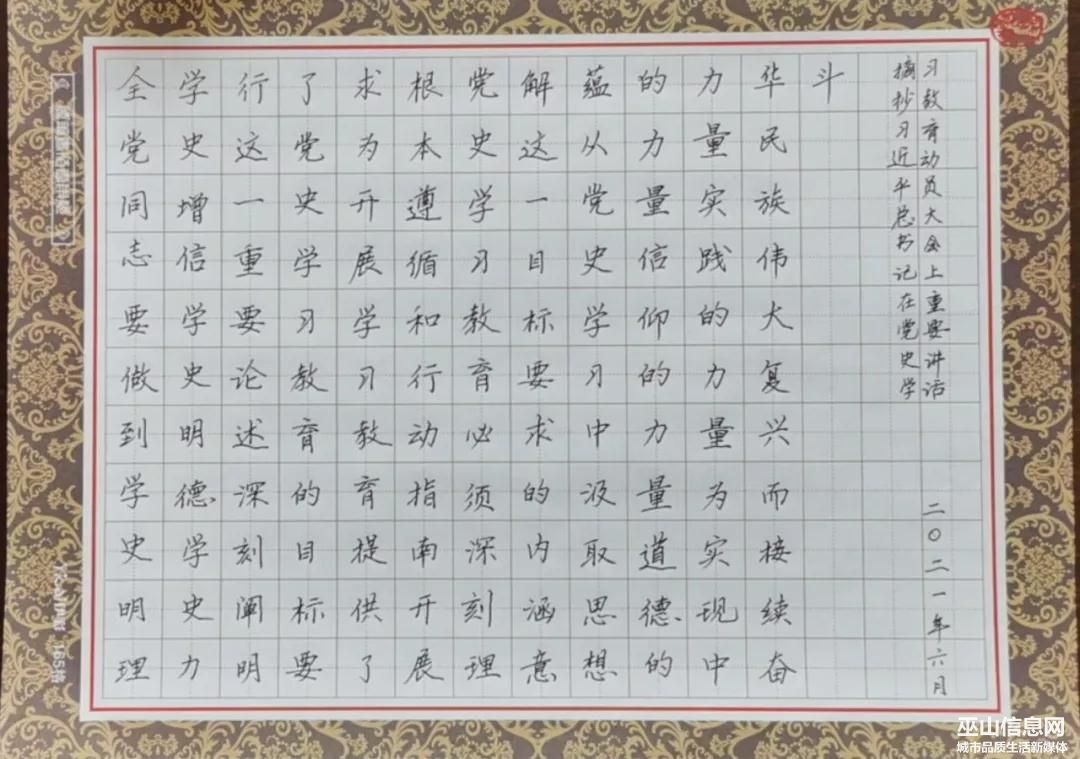 全党同志要做到学史明理
学史增信学史明德学史力
行这一重要论述深刻阐明
了党史学习教育的目标要
求为开展学习教育提供了
根本遵循和行动指南开展
党史学习教育必须深刻理
解这一目标要求的内涵意
蕴从党史学习中汲取思想
的力量信仰的力量道德的
力量实践的力量为实现中
华民族伟大复兴而接续奋
斗
摘抄习近平总书记在党史学
习教育动员大会上重要讲话
二〇二一年六月
165格
巫山信息网
城市品质生活新媒体